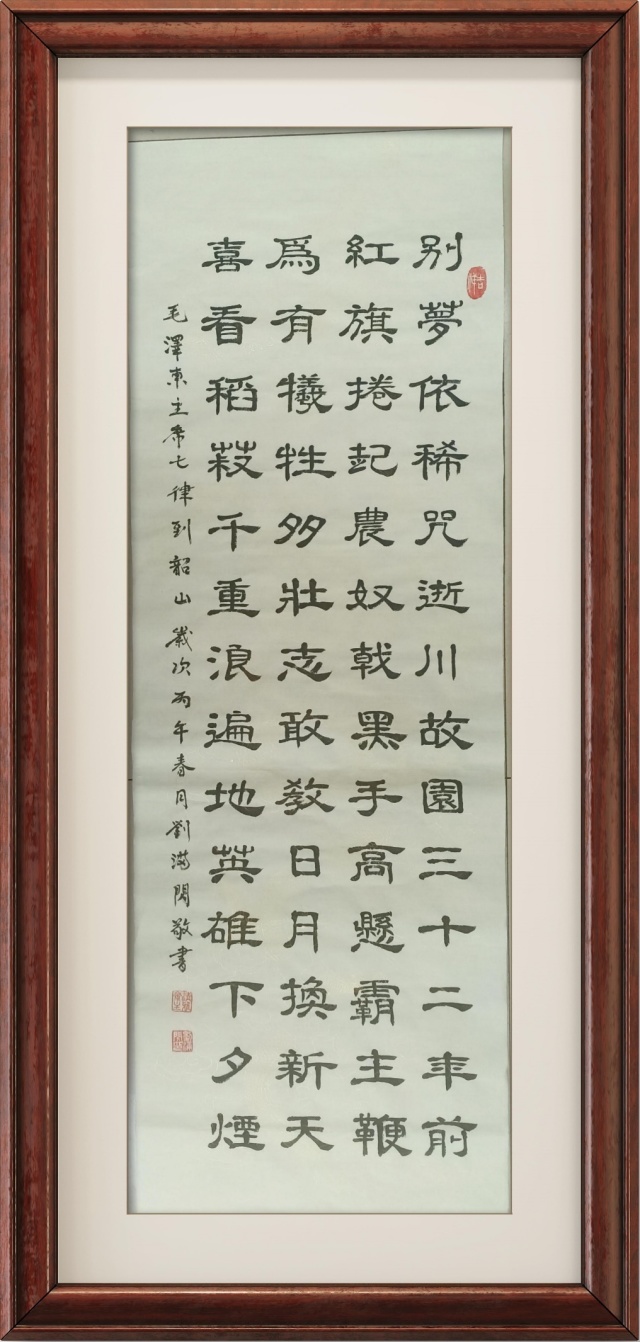 别夢依稀咒逝川故園三十二年前
紅旗捲起農奴戟黑手高懸霸主鞭
爲有犧牲多壯志敢教日月換新天
喜看稻菽千重浪遍地英雄下夕煙
毛澤東主席七律到韶山歲次丙午春月劉滿閣敬書